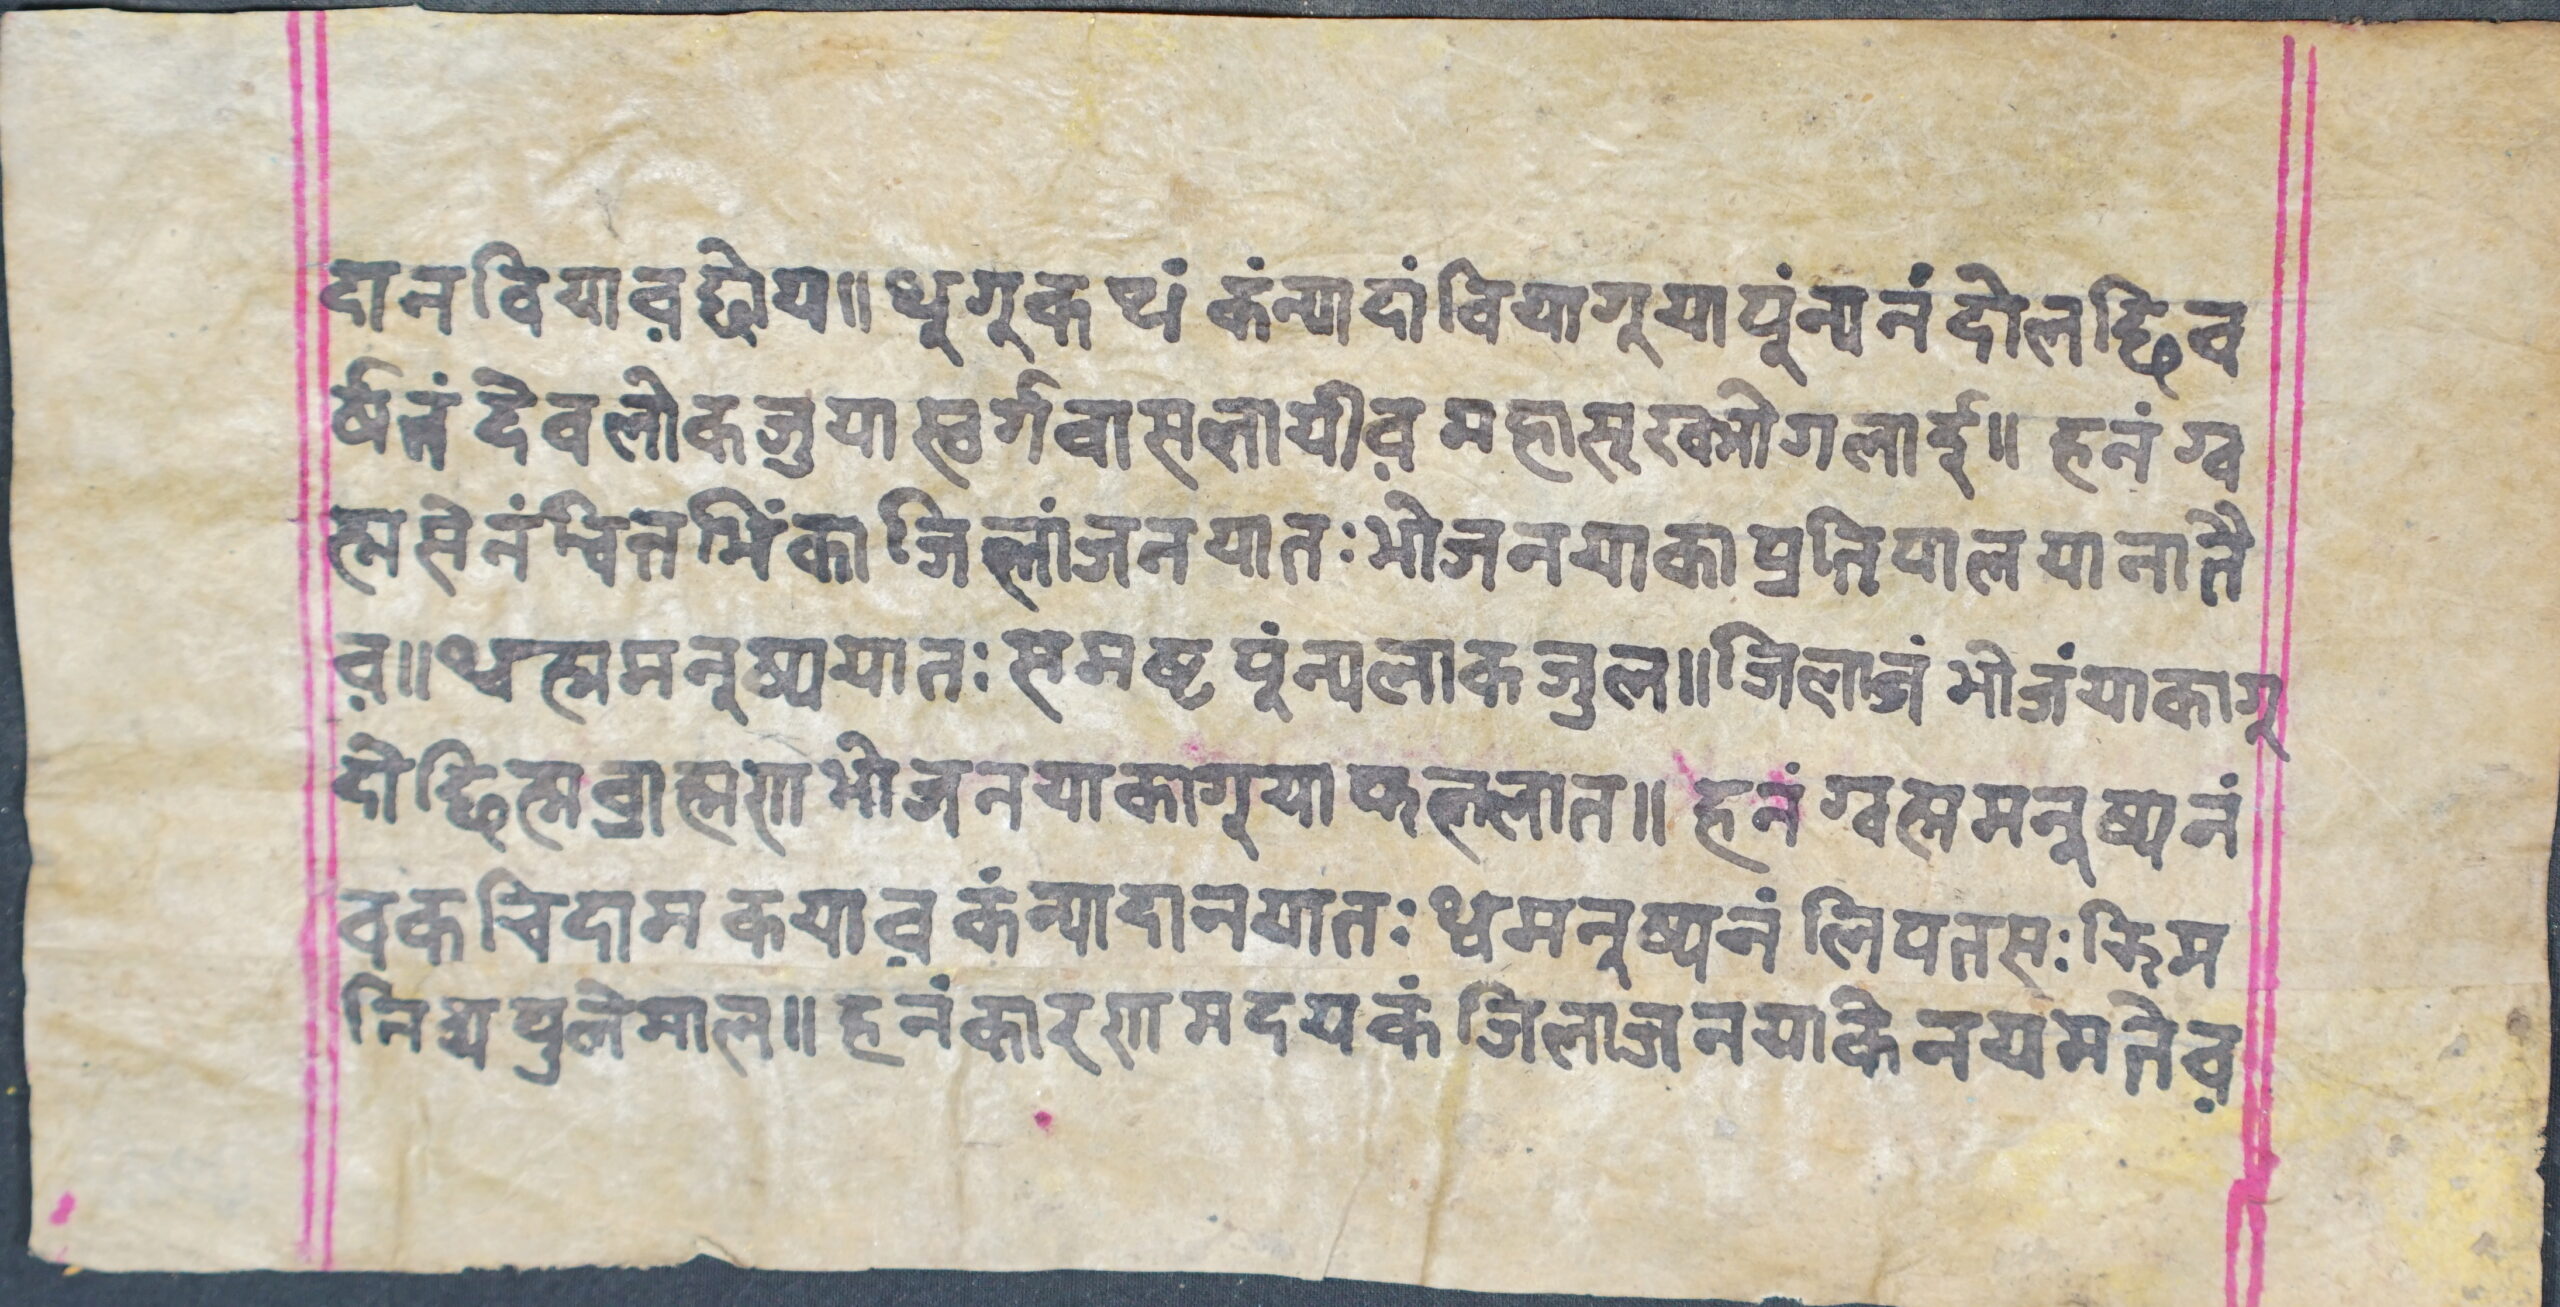 दानवियाव़छोय॥ थुगुकथं कंन्यादांवियागुयापुंन्यनं दोलछिव
र्षनं देवलोकजुया स्वर्गवासलायीव़ महासुखभोगलाई॥ हनं ग्व
ह्मसेनं चित्तभिंका जिलांजनयातः भोजनयाका प्रतिपालयानातै
व़॥ थ्वह्ममनुष्ययातः समष्ट पुंन्यलाकजुल॥ जिलाजं भोजंयाकागु
दोछिह्मब्राह्मण भोजनयाकागुया फललात॥ हनं ग्वह्ममनुष्यनं
वकचिदाम कयाव़ कंन्यादानयातः थ्वमनुष्यनं लिपतसः क्रिम
निश्च युलेमाल॥ हनं कारण मदयकं जिलाजनयाके नयमतैव़